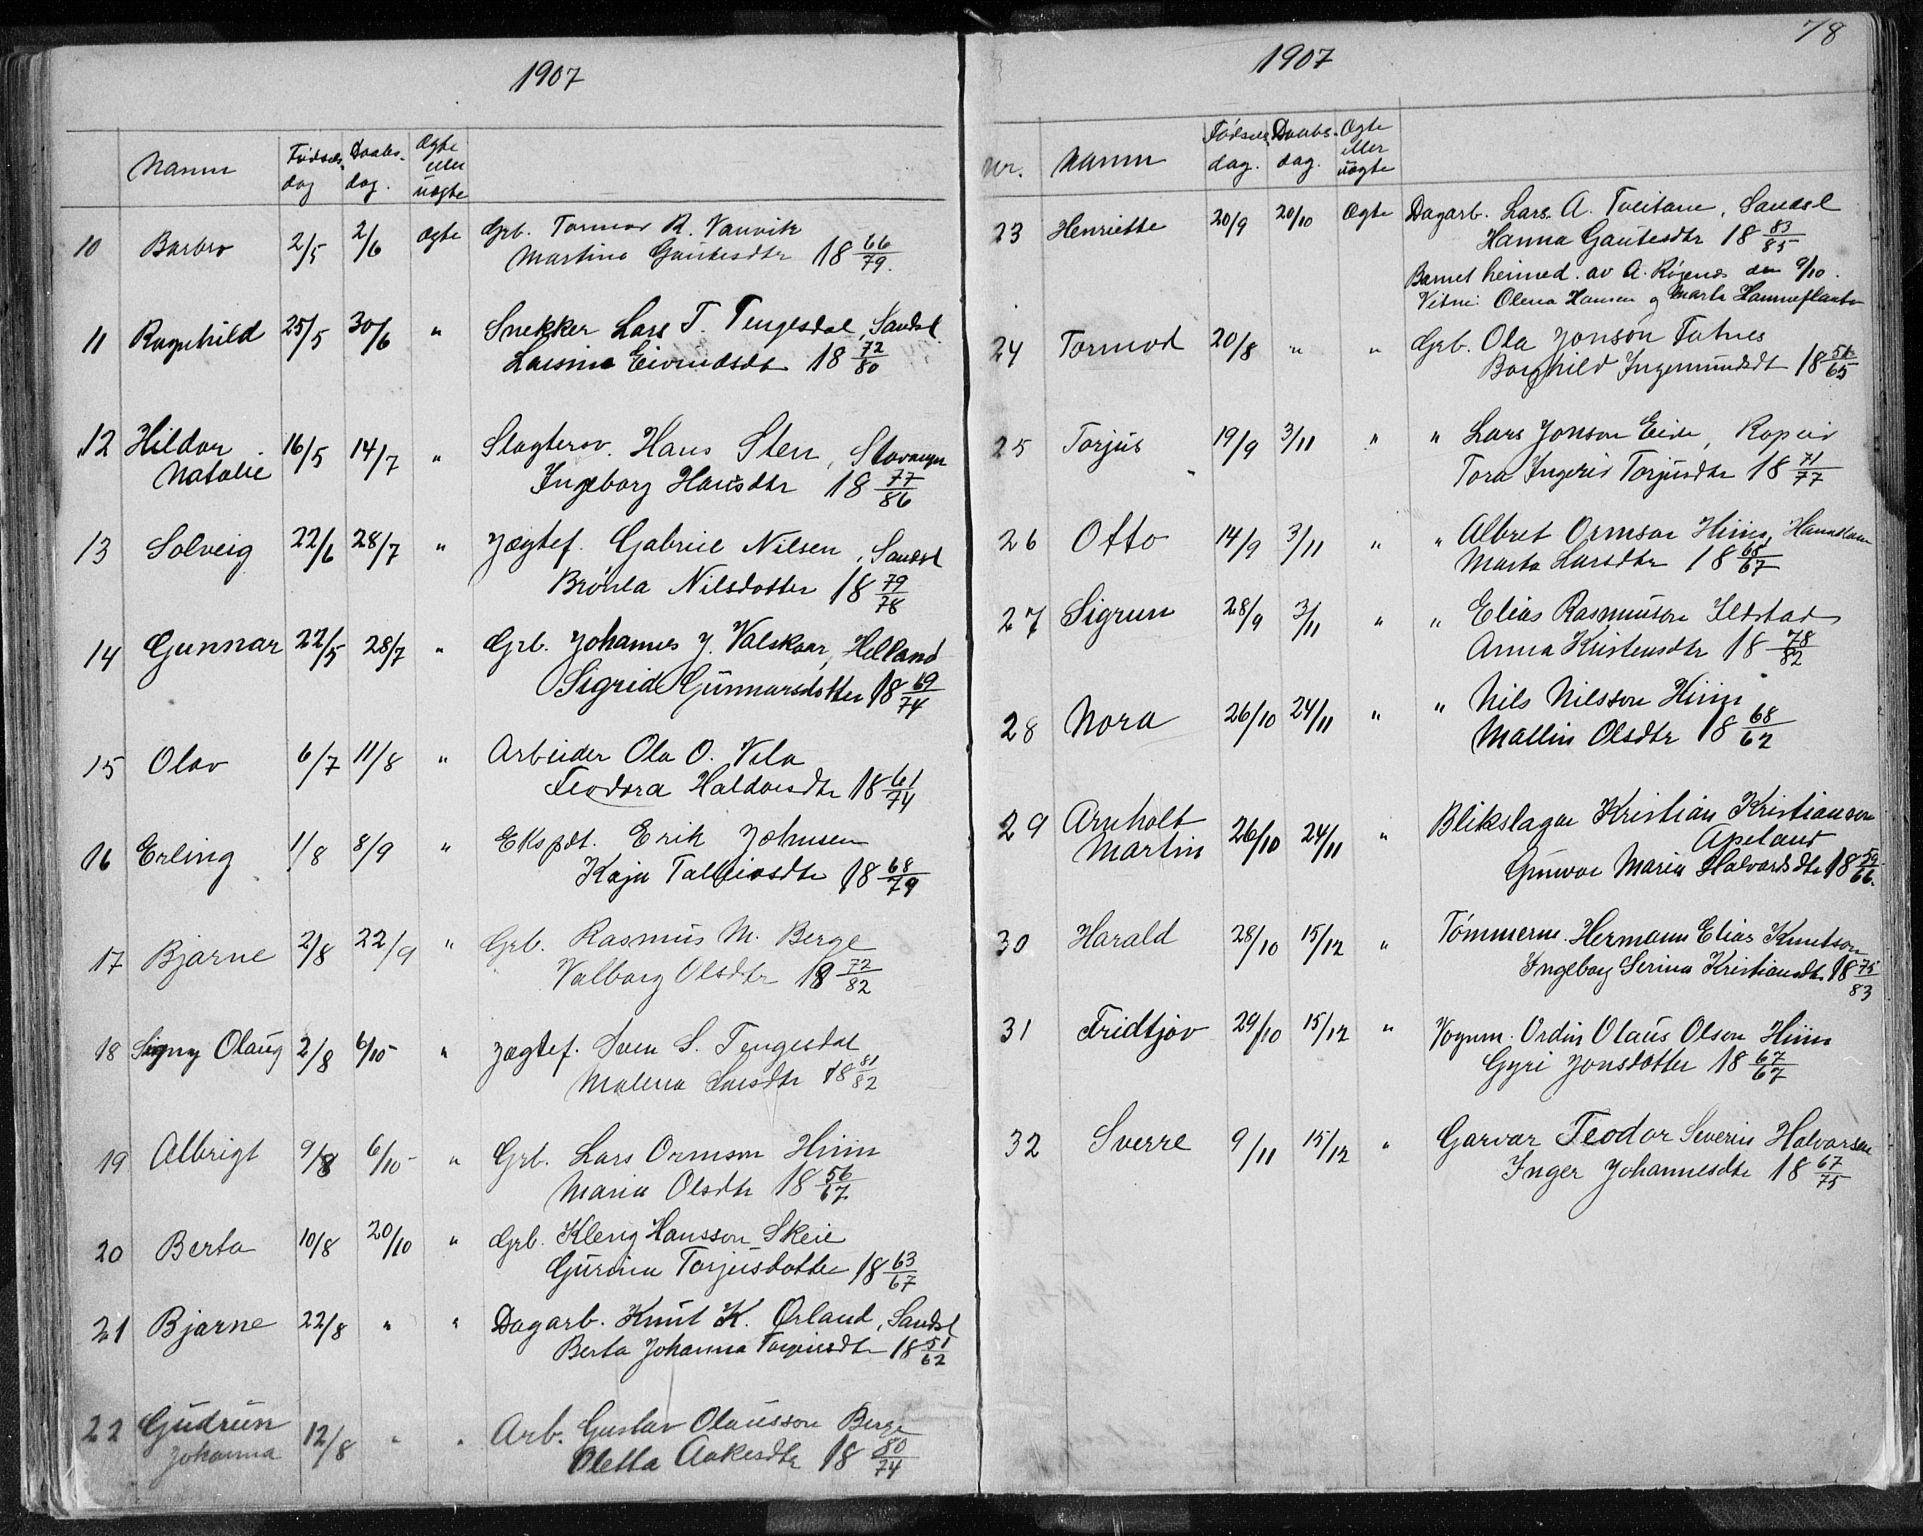 1907
Namn Fødsels dag Daabs- dag. Ægte eller uægte
10 Barbro 2/5 2/6 ægte Grb. Tormod R. Vanvik
Martina Gautesdtr 18 66/79.
11 Ragnhild 25/5 30/6 " Snekker Lars T. Tengesdal, Sandsl.
Larsine Eivindsdt 18 72/80
12 Hildor 16/5 14/7 " Slagtersv. Hans Sten, Stavanger
Natalie Ingeborg Hansdtr 18 77/86
13 Solveig 22/6 28/7 " Jægtef. Gabriel Nilsen, Sandsl
Brönla Nilsdotter 18 79/78
14 Gunnar 22/5 28/7 " Grb. Johannes J. Valskaar, Helland
Sigrid Gunnarsdotter 18 69/74
15 Olav 6/7 11/8 " Arbeider Ola O. Vela
Teodora Haldorsdtr 18 61/74
16 Erling 1/8 8/9 " Ekspdt. Erik Johnsen
Kaja Talleivsdtr 18 68/79
17 Bjarne 2/8 22/9 " Grb. Rasmus M. Berge
Valborg Olsdtr 18 72/82
18 Signy Olaug 2/8 6/10 " Jægtef. Sven S. Tengesdal
Malena Larsdtr 18 81/82
19 Albrigt 9/8 6/10 " Grb. Lars Ormson Hiim
Maria Olsdtr 18 56/67
20 Berta 10/8 20/10 " Grb. Kleng Hansson Skeie
Gurina Torjusdotter 18 63/67
21 Bjarne 22/8 " " Dagarb. Knut K. Ørland, Sandsl
Berta Johanna 18 51/62
22 Gudrun 12/8 " " Arb. Gustav Olausson Berge
Johanna Oletta Aakesdtr 18 80/74
78
1907
Nr. Namn Fødsels dag. Daabs- dag. Ægte eller uægte
23 Henriette 20/9 20/10 Ægte Dagarb. Lars A. Tveitane, Sandsl
Hanna Gautesdtr 18 83/85
Barnet heimed. av A. Røgenes den 9/10.
Vitne: Olena Hansen og Marta
24 Tormod 20/8 " " Grb. Ola Jonson Fatnes
Borghild Ingemundsdt 18 /65
25 Torjus 19/9 3/11 " " Lars Jonson Eide, Ropeid
Tora Ingeris Torjusdtr 18 71/77
26 Otto 14/9 3/11 " " Albret Ormson Hiim,
Marta Larsdtr 18 68/67
27 Sigrun 28/9 3/11 " " Elias Rasmuson Ilstad
Anna Kristensdtr 18 78/82
28 Nora 26/10 24/11 " " Nils Nilsson Hiim
Mallin Olsdtr 18 68/62
29 Arnholt 26/10 24/11 " Blikslager Kristian Kristianson
Martin Apeland
Gunvor Maria Halvardsdtr 18 59/66.
30 Harald 28/10 15/12 " Tømmerm. Hermann Elias Knutson
Ingeborg Serina Kristiansdtr 18 75/83
31 Fridtjov 29/10 15/12 " Vognm. Ordin Olaus Olson Hiim
Gyri Jonsdotter 18 67/67
32 Sverre 9/11 15/12 " Garvar Teodor Severin Halvorsen
Inger Johannesdtr 18 67/75